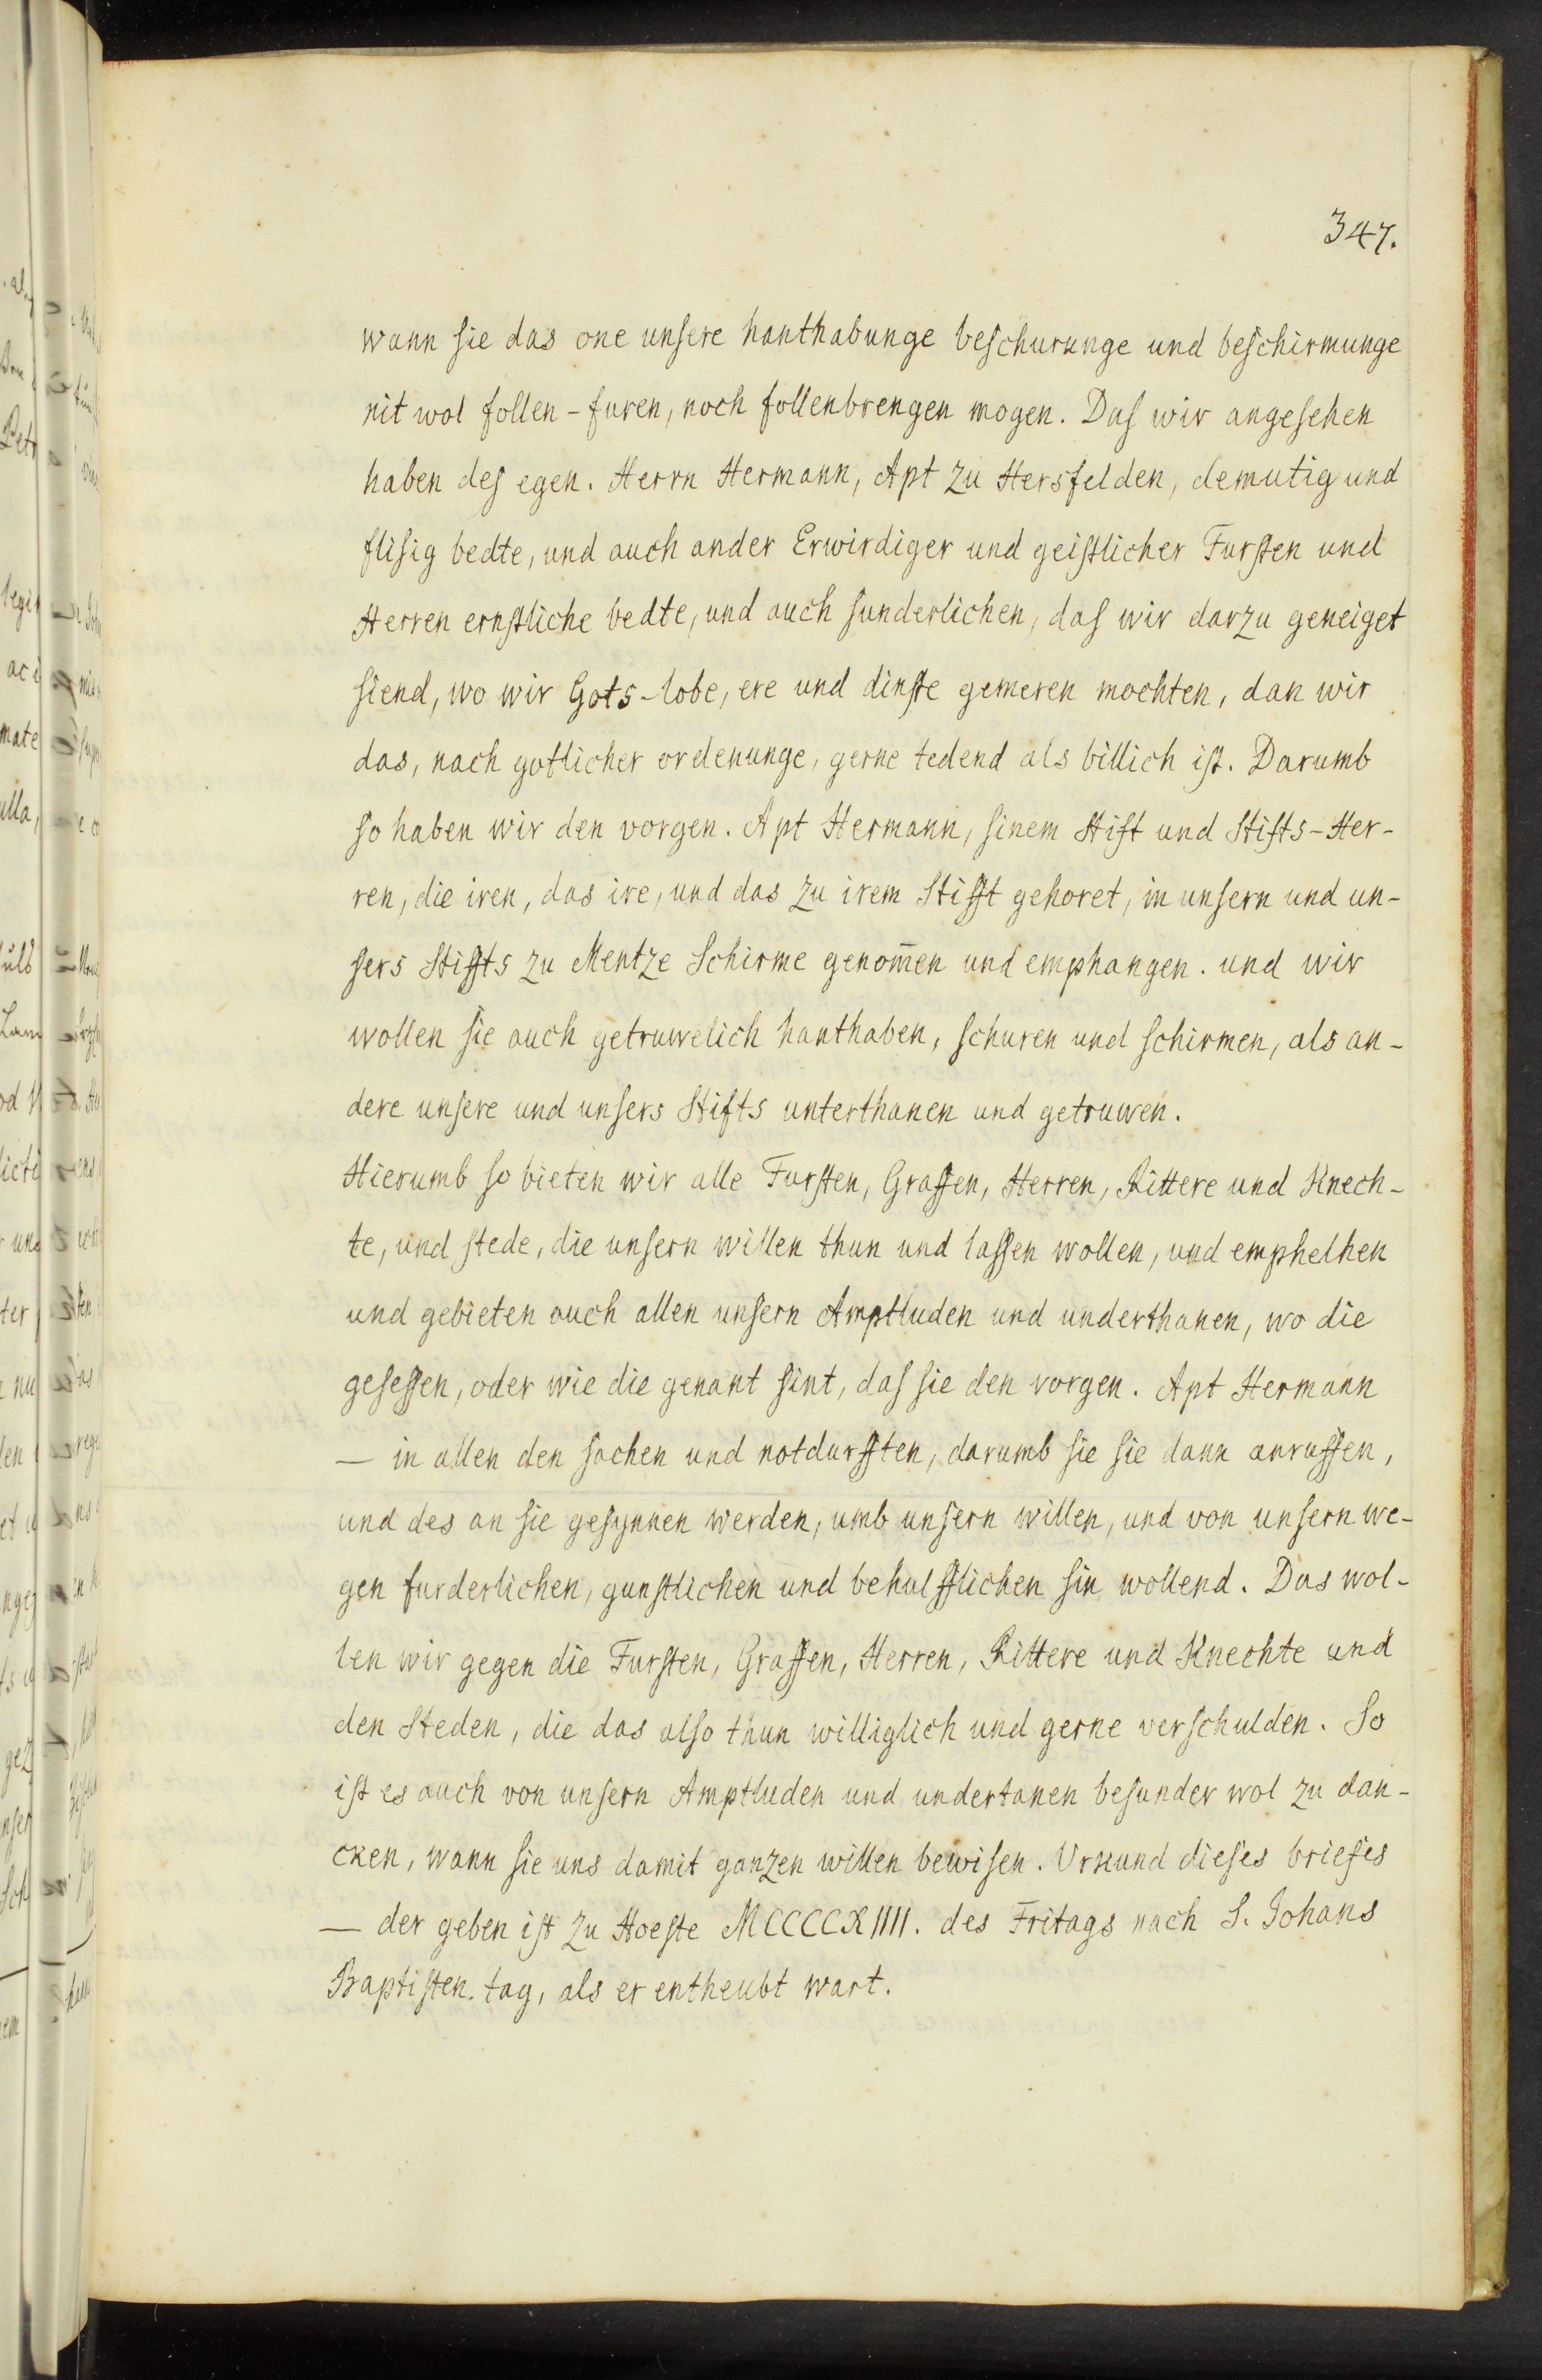 347.
wann sie das one unsere hanthabunge beschurunge und beschirmunge
nit wol follen-furen, noch follenbrengen mogen. Das wir angesehen
haben des egen. Herrn Hermann, Apt zu Hersfelden, demutig und
flisig bedte, und auch ander Erwirdiger und geistlicher Fursten und
Herren ernstliche bedte, und auch sunderlichen, das wir darzu geneiget
siend, wo wir Gots-lobe, ere und dinste gemeren mochten, dan wir
das, nach gotlicher ordenunge, gerne tedend als billich ist. Darumb
so haben wir den vorgen. Apt Hermann, sinem Stift und Stifts-Her-
ren, die iren, das ire, und das zu irem Stifft gehoret, in unsern und un-
sers Stiffts zu Mentze Schirme genom̄en und emphangen. und wir
wollen sie auch getruwelich hanthaben, schuren und schirmen, als an-
dere unsere und unsers Stifts unterthanen und getruwen.
Hierumb so bieten wir alle Fursten, Graffen, Herren, Rittere und Knech-
te, und stede, die unsern willen thun und lassen wollen, und emphelhen
und gebieten auch allen unsern Amptluden und underthanen, wo die
gesessen, oder wie die genant sint, das sie den vorgen. Apt Hermann
— in allen den sachen und notdurfften, darumb sie sie dann anruffen,
und des an sie gesynnen werden, umb unsern willen, und von unsern we-
gen furderlichen, gunstlichen und behulfflichen sin wollend. Das wol-
len wir gegen die Fursten, Graffen, Herren, Rittere und Knechte und
den Steden, die das also thun williglich und gerne verschulden. So
ist es auch von unsern Amptluden und undertanen besunder wol zu dan-
cken, wann sie uns damit ganzen willen bewisen. Urkund dieses briefes
— der geben ist zu Hoeste MCCCCXIIII. des Fritags nach S. Johans
Baptisten tag, als er entheubt wart.